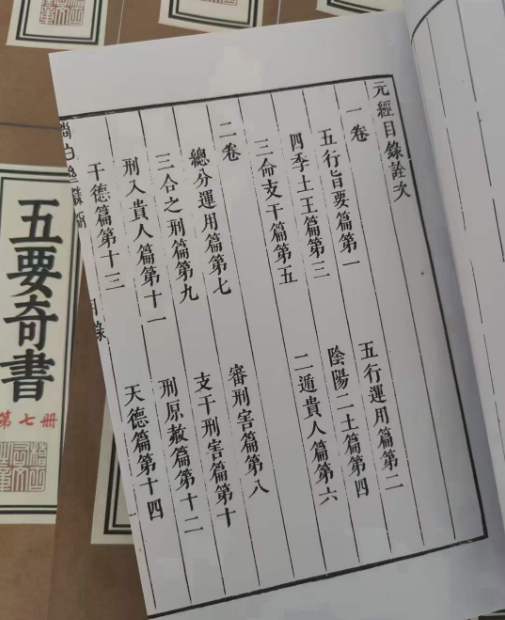 元經目錄詮次
一卷
五行旨要篇第一
五行運用篇第二
四季土王篇第三
陰陽二土篇第四
三命支干篇第五
二遁貴人篇第六
二卷
總分運用篇第七
審刑害篇第八
三合之刑篇第九
支干刑害篇第十
刑入貴人篇第十一
刑原赦篇第十二
干德篇第十三
天德篇第十四
尚白齋鐫
目錄
一
五要奇書
第七册